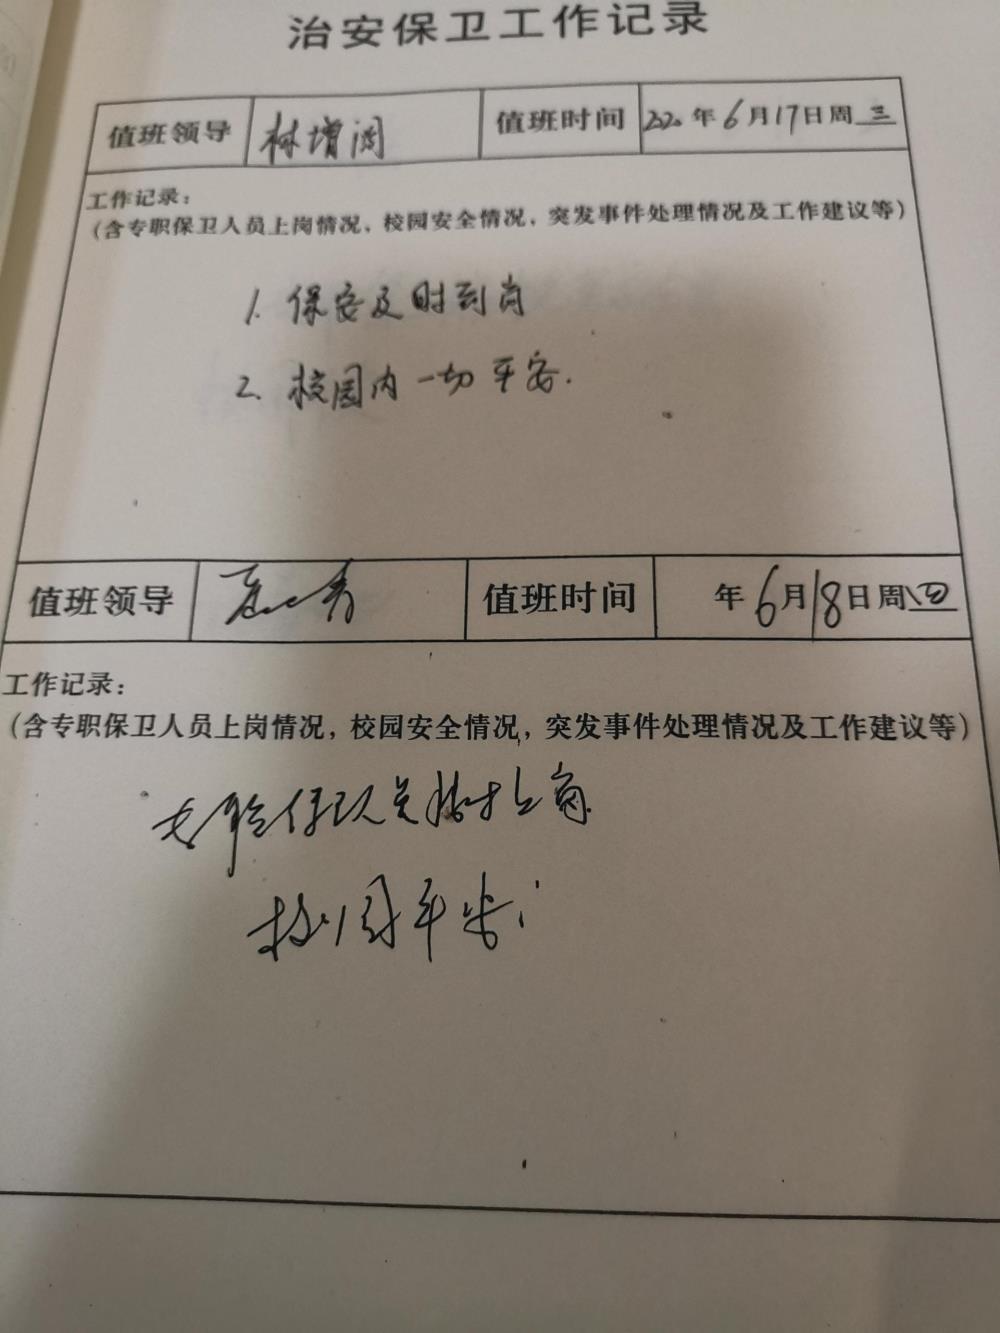 治安保卫工作记录
值班领导 林增阔 值班时间 2220年6月17日周三
工作记录：
（含专职保卫人员上岗情况，校园安全情况，突发事件处理情况及工作建议等）
1. 保安及时到岗
2. 校园内一切平安.
值班领导 值班时间 年6月18日周四
工作记录：
（含专职保卫人员上岗情况，校园安全情况，突发事件处理情况及工作建议等）
专职保卫人员按时上岗
校园平安.